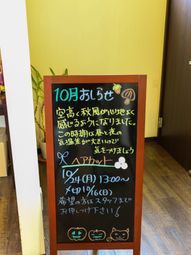 10月おしらせ
空高く秋風が心地よく
感じるようになりました。
この時期は昼と夜の
気温差が大きいので
気をつけましょう
ヘアカット
10/24(月) 13:00〜
〆切 10/16(日)
希望の方はスタッフまで
お申しつけ下さい!